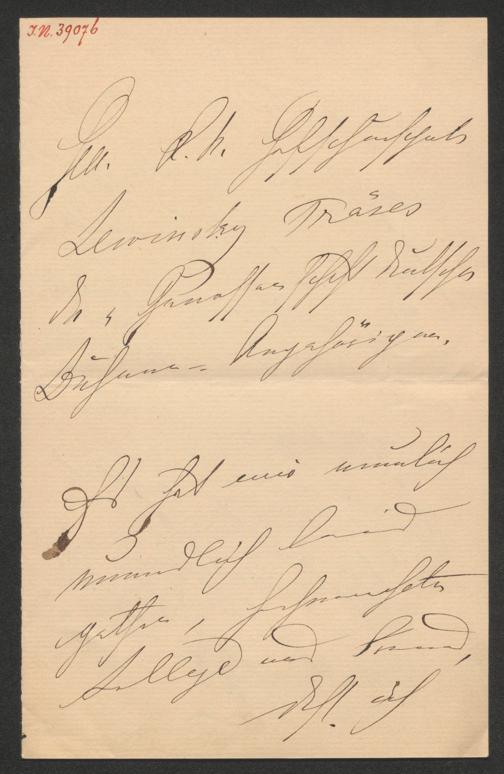 I.N. 39076
Sr. k. k. Hofschauspieler
Lewinsky Präses
der „Genossenschaft deutscher
Bühnen-Angehörigen.
Es hat mir neulich
unendlich leid
gethan, hochverehrter
College und Freund,
daß ich